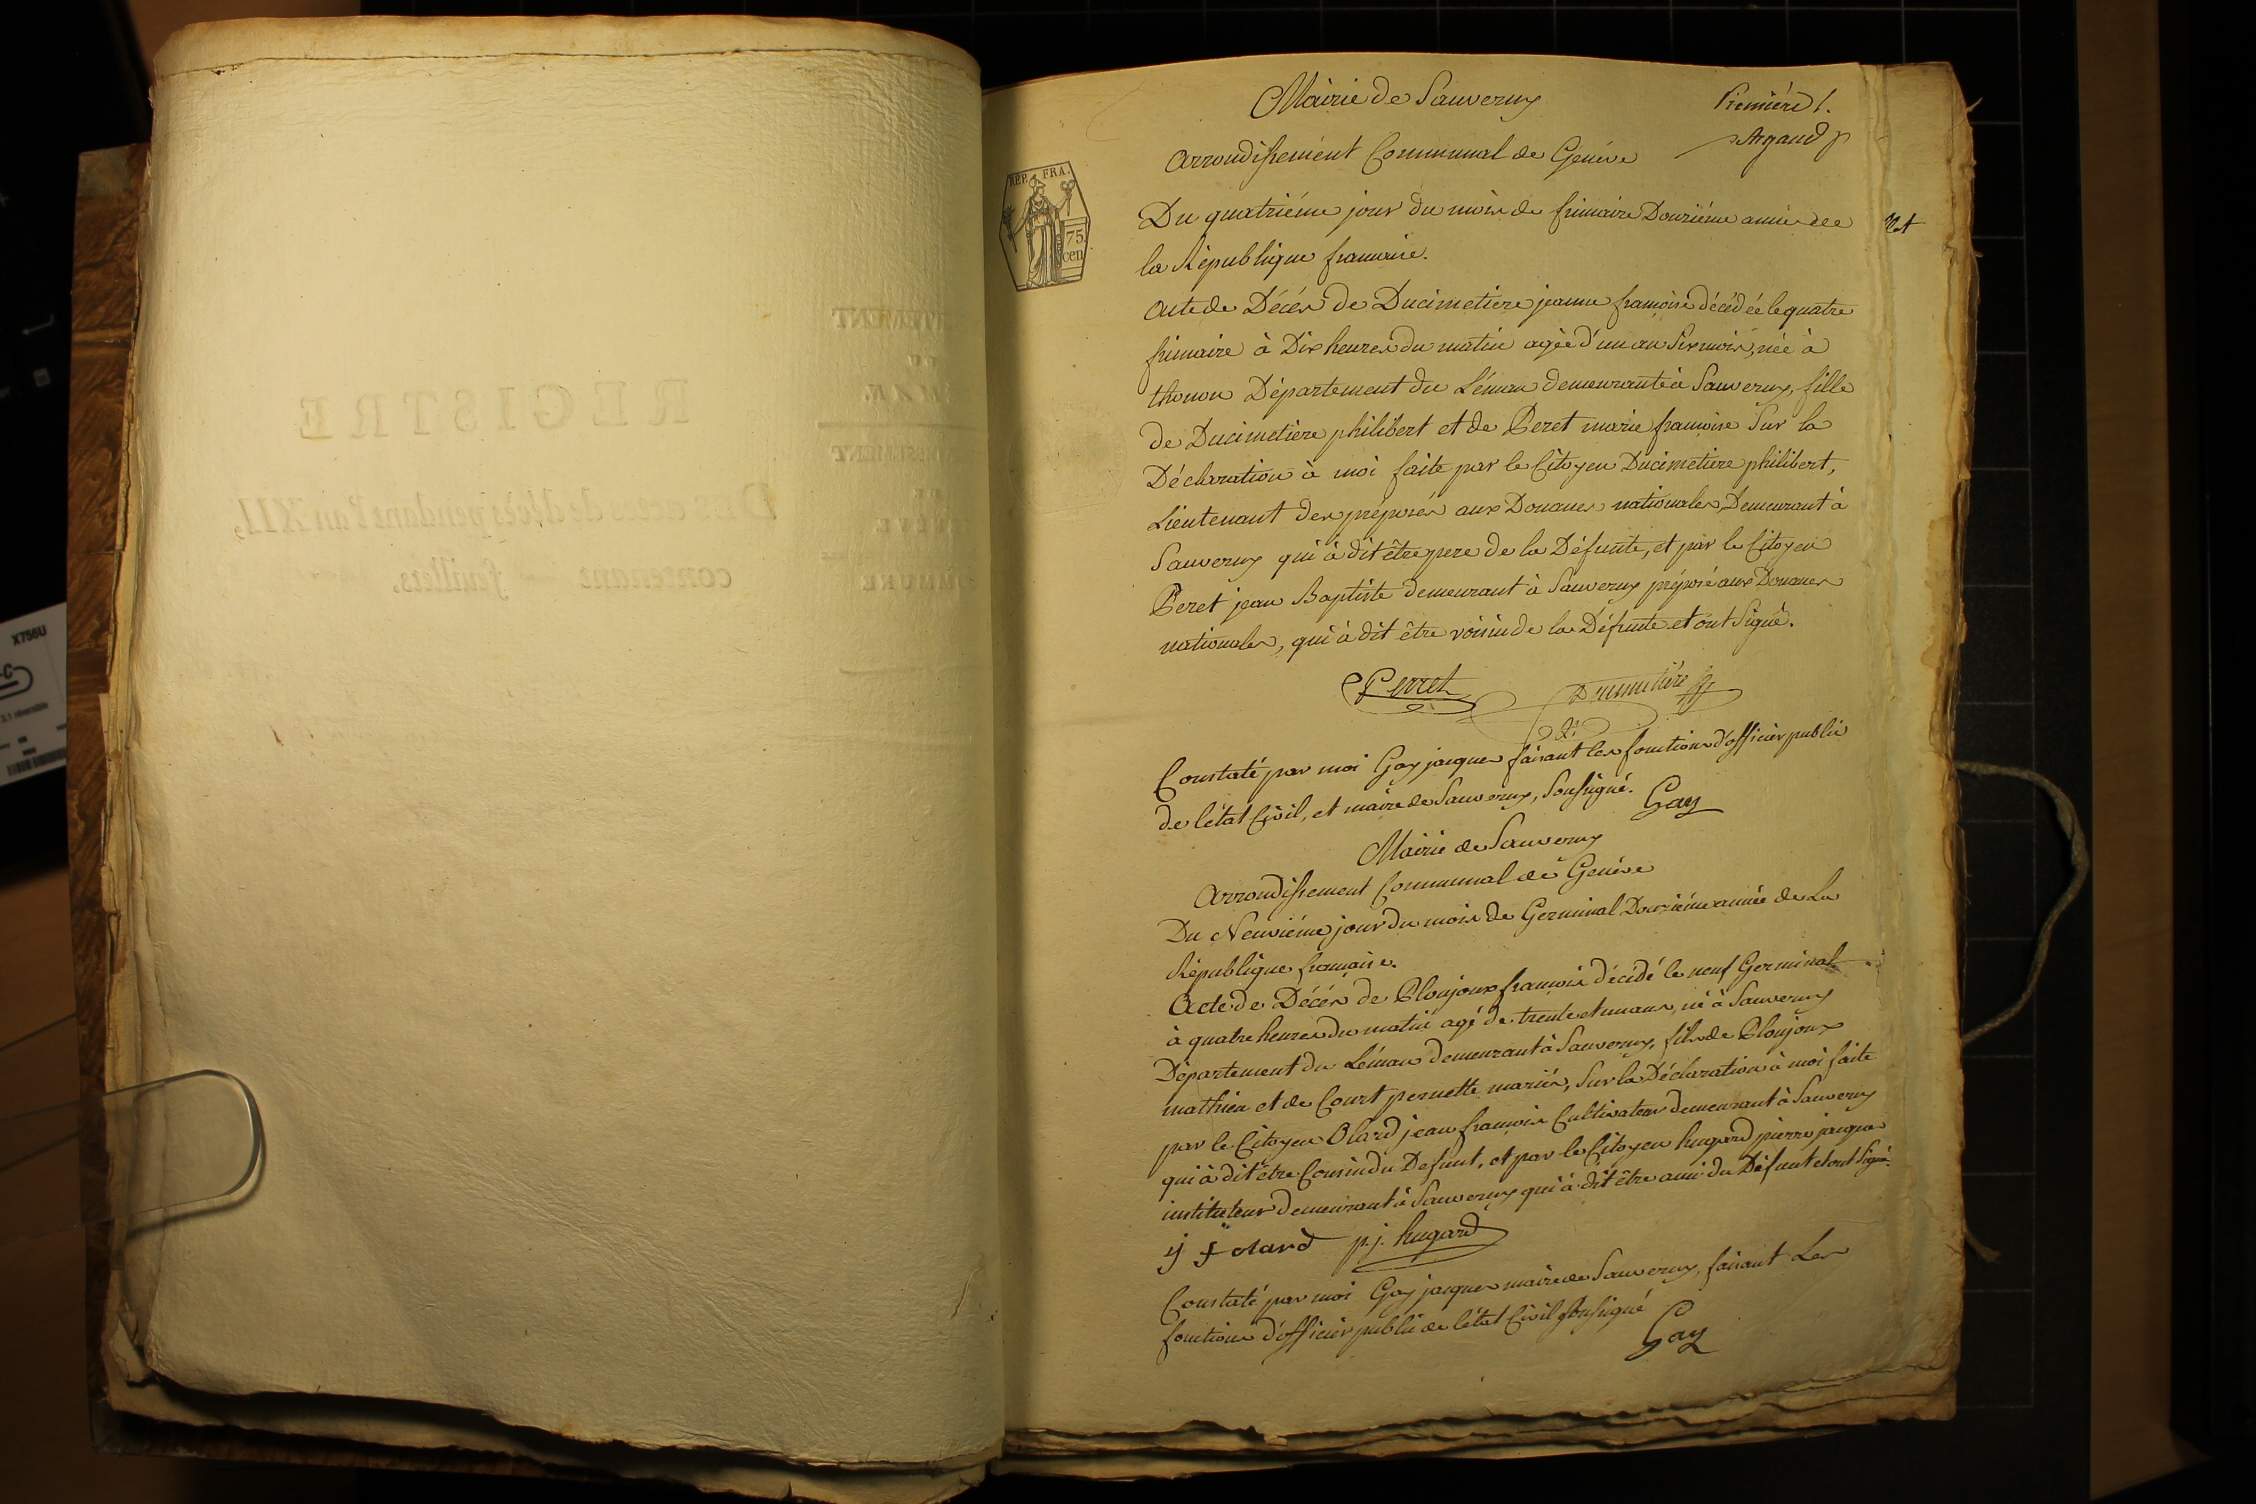 Mairie de Sauverny
Premiére f.
Argand p
arrondissement Communal de Genéve
REP. FRA.
75
cen
Du quatriéme jour du mois de frimaire Douziéme année de
la République francaise.
acte de Décès de Ducimetiere jeanne francoise décédée le quatre
frimaire à Dix heures du matin agée d'un an six mois, née à
thonon Département du Léman demeurante à Sauverny, fille
de Ducimetiere philibert et de Peret marie francoise Sur la
Déclaration à moi faite par le Citoyen Ducimetiere philibert,
Lieutenant des préposés aux Douanes nationales Demeurant à
Sauverny qui à dit être pere de la Défunte, et par le Citoyen
Peret jean Baptiste demeurant à Sauverny préposé aux Douanes
nationales, qui à dit être voisin de la Défunte et ont Signé.
Perret Ducimetiére
Constaté par moi Gay jacques faisant les fonctions d'officier public
de l'état Civil, et maire de Sauverny, Soussigné. Gay
Mairie de Sauverny
Arrondissement Communal de Genéve
Du Neuviéme jour du mois de Germinal Douziéme année de La
République francaise.
Acte de Décés de Ploujoux francois décédé le neuf Germinal
à quatre heures du matin agé de trente et un ans, né à Sauverny
Département du Léman demeurant à Sauverny, fils de Ploujoux
mathieu et de Court pernette mariés, Sur la Déclaration à moi faite
par le Citoyen Olard jean francois Cultivateur demeurant à Sauverny
qui à dit être Cousin du Defunt, et par le Citoyen hugard pierre jacques
instituteur demeurant à Sauverny qui à dit être ami du Défunt et ont Signé.
j f olard p. j. hugard
Constaté par moi Gay jacques maire de Sauverny, faisant Les
fonctions d'officier public de l'état Civil Soussigné
Gay
REGISTRE
Des actes de décès pendant l'an XII,
contenant feuillets.
X756U